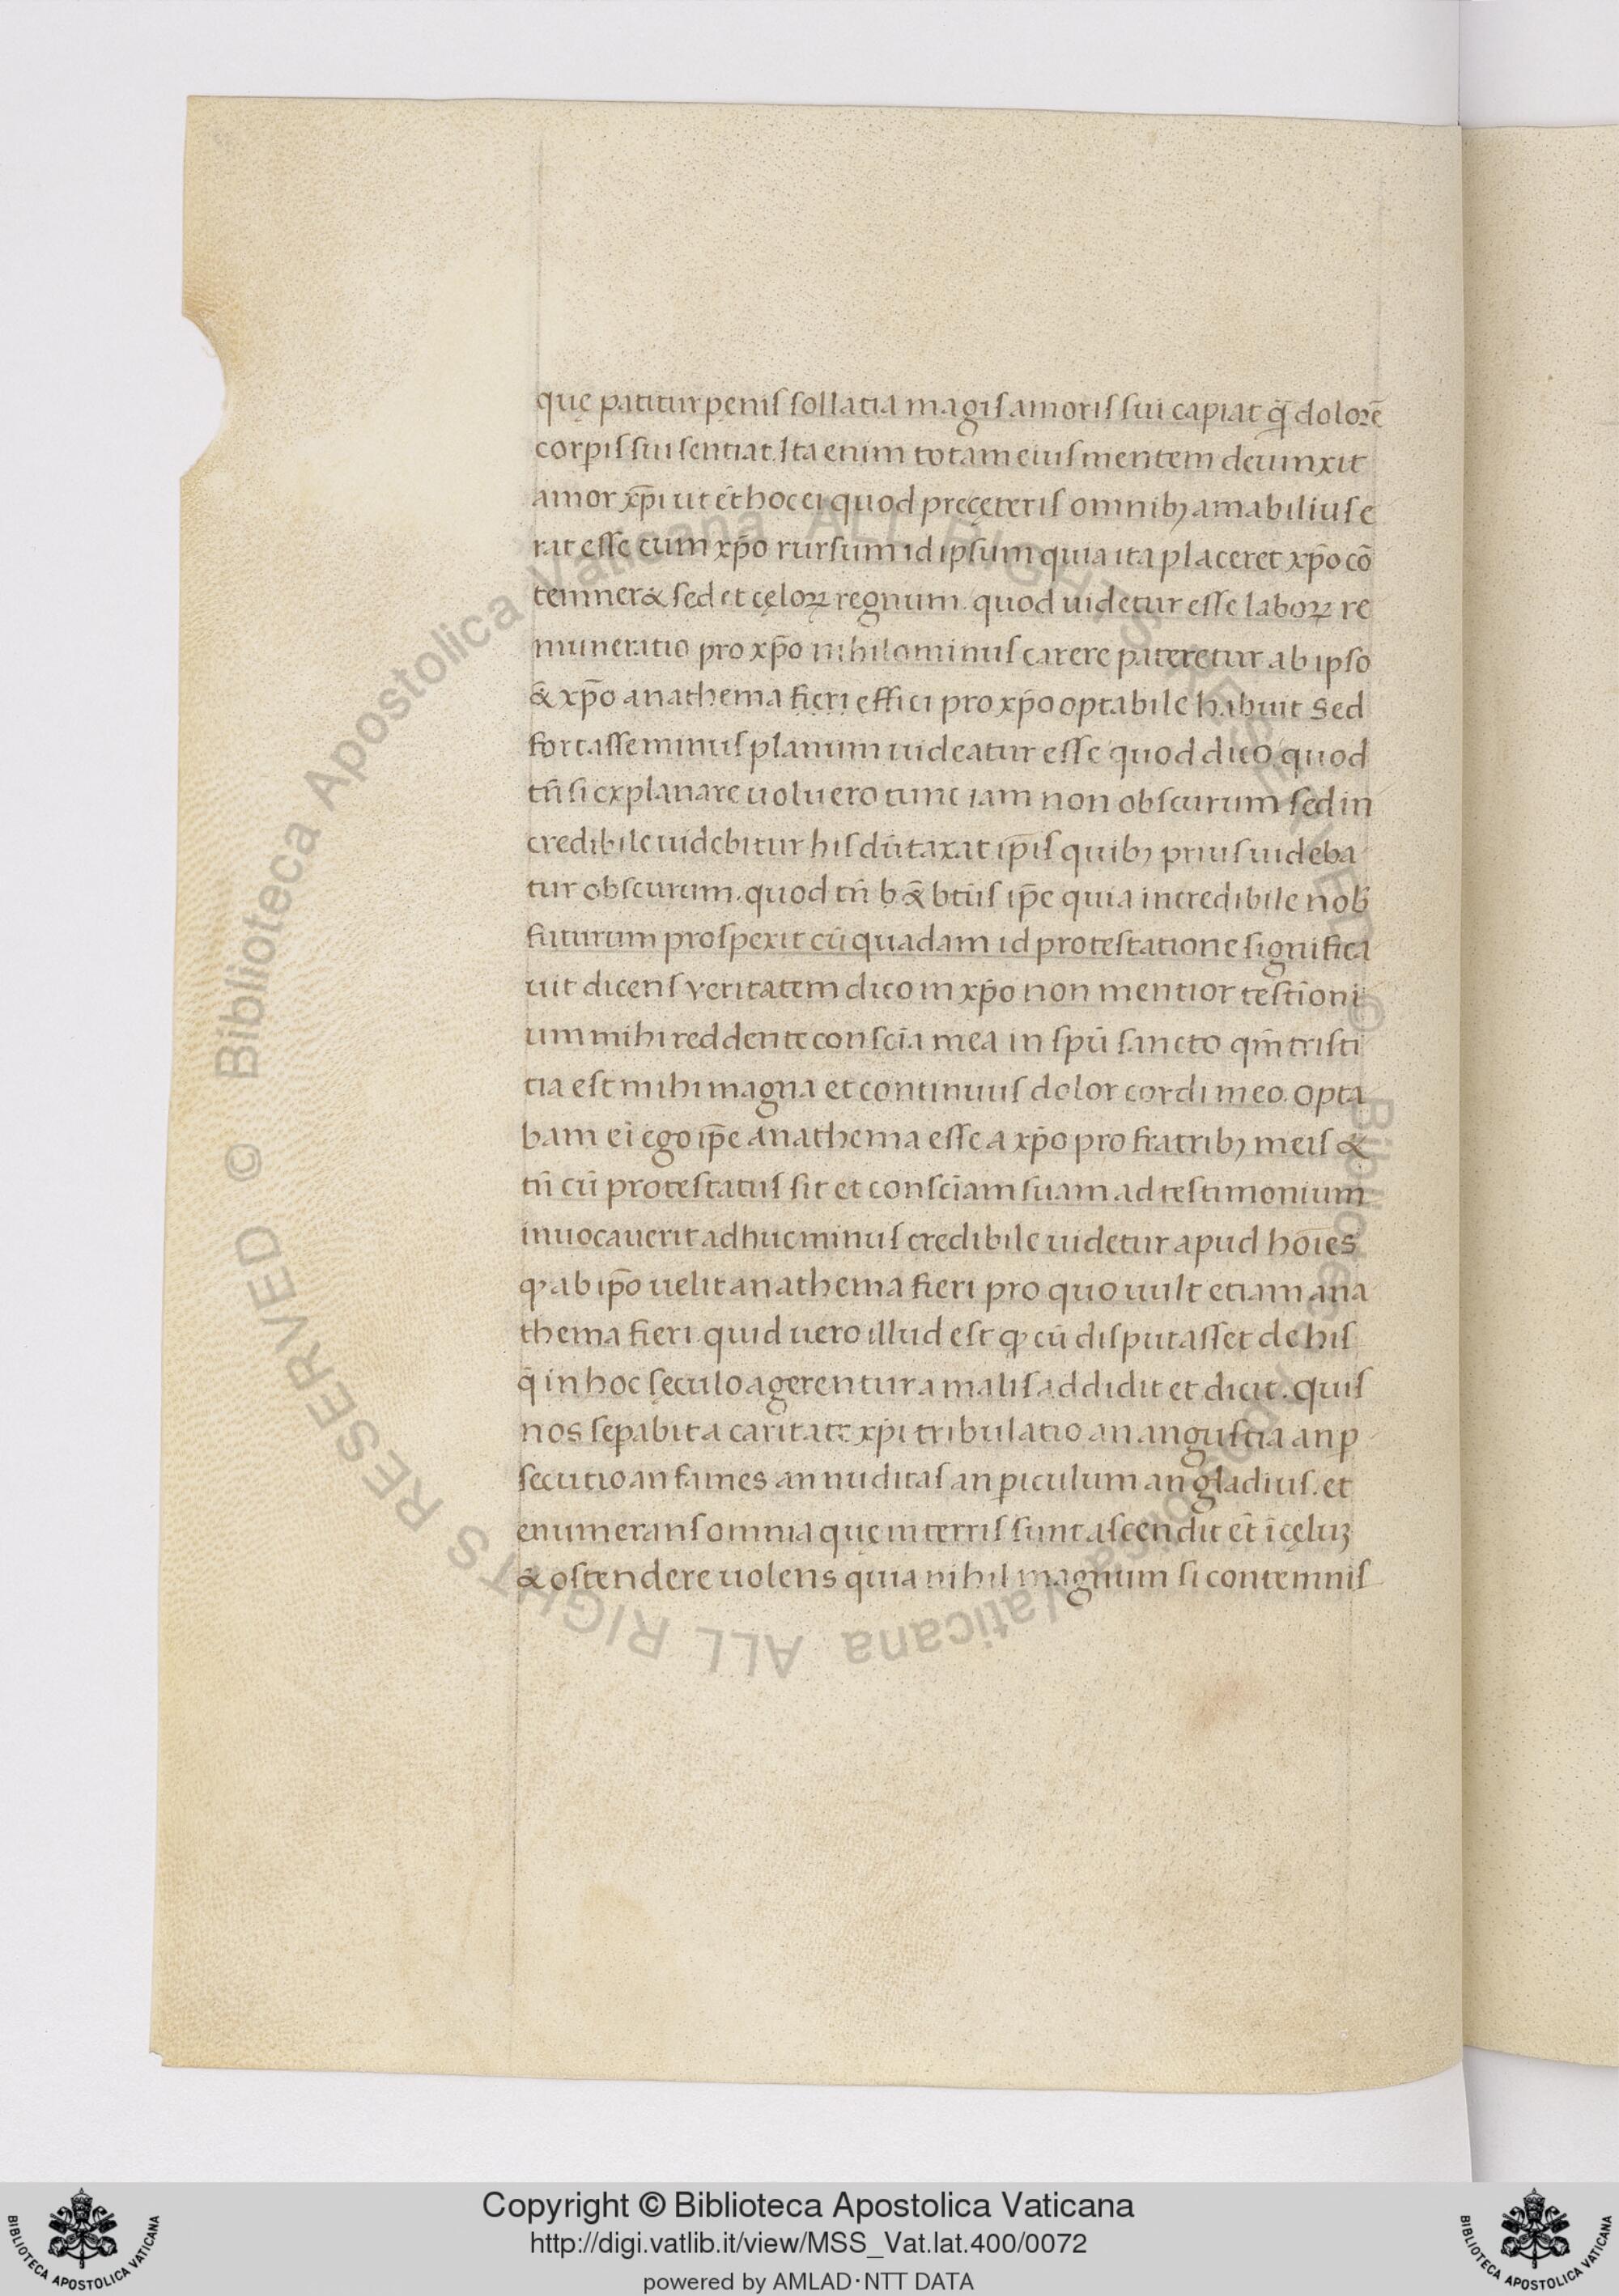 quę patitur pęnis sollatia magis amoris sui capiat q̃ dolorē
corpis sui sentiat. Ita enim totam eius mentem deuinxit
amor xp̄i ut et̄ hoc ei quod preçęteris omnibꝫ amabilius e
rat esse cum xp̄o rursum id ipsum quia ita placeret xp̄o cō
temner& sed et cęloꝝ regnum. quod uidetur esse laboꝝ re
muneratio pro xp̄o nihilominus carere pateretur ab ipso
& xp̄o anathema fieri effici pro xp̄o optabile habuit sed
fortasse minus planum uideatur esse quod dico quod
tn̄ si explanare uoluero tunc iam non obscurum sed in
credibile uidebitur his dūtaxat ip̄is quibꝫ prius uideba
tur obscurum. quod tn̄ b & bt̄us ip̄e quia incredibile nob̄
futurum prospexit cū quadam id protestatione significa
uit dicens veritatem dico in xp̄o non mentior testīoni
um mihi reddente consciā mea in spū sancto qm̄ tristi
tia est mihi magna et continuus dolor cordi meo. opta
bam ei̅ ego ip̄e anathema esse a xp̄o pro fratribꝫ meis &
tn̄ cū protestatus sit et consciām suam ad testimonium
inuocauerit adhuc minus credibile uidetur apud hoīes
ꝙ ab ip̄o uelit anathema fieri pro quo uult etiam ana
thema fieri. quid uero illud est ꝙ cū disputasset de his
q̄ in hoc sęculo agerentur a malis addidit et dicit. quis
nos sepabit a caritate xp̄i tribulatio an angustia an p
secutio an fames an nuditas an piculum an gladius. et
enumerans omnia quę in terris sunt ascendit et̄ ī cęluꝫ
& ostendere uolens quia nihil magnum si contemnis
Copyright © Biblioteca Apostolica Vaticana
http://digi.vatlib.it/view/MSS_Vat.lat.400/0072
powered by AMLAD·NTT DATA
BIBLIOTECA APOSTOLICA VATICANA
BIBLIOTECA APOSTOLICA VATICANA
© Biblioteca Apostolica Vaticana ALL RIGHTS RESERVED © Biblioteca Apostolica Vaticana ALL RIGHTS RESERVED